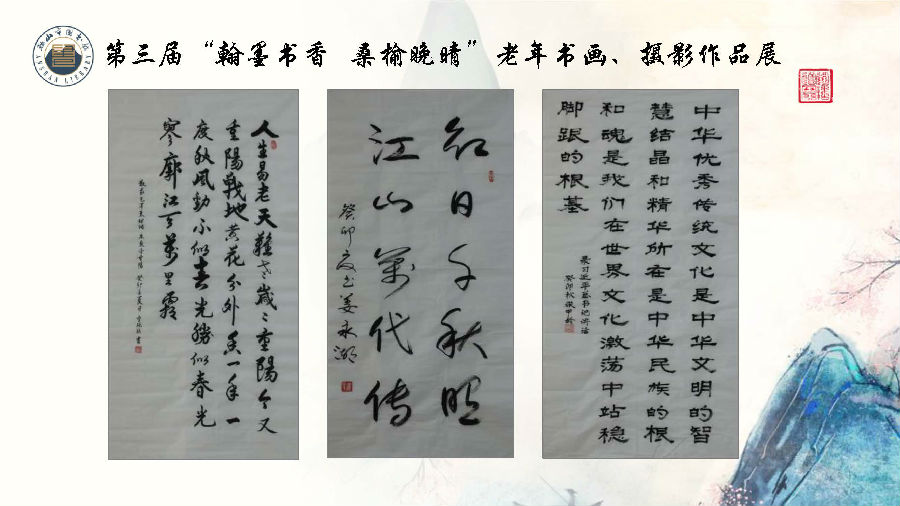 第三届“翰墨书香 桑榆晚晴”老年书画、摄影作品展
人生易老天难老岁岁重陽今又
重陽戰地黄花分外香一年一
度秋風勁不似春光勝似春光
寥廓江天萬里霜
红日千秋照
江山萬代传
癸卯夏书姜永湖
中华优秀传统文化是中华文明的智
慧结晶和精华所在是中华民族的根
和魂是我们在世界文化激荡中站稳
脚跟的根基
录习近平总书记讲话